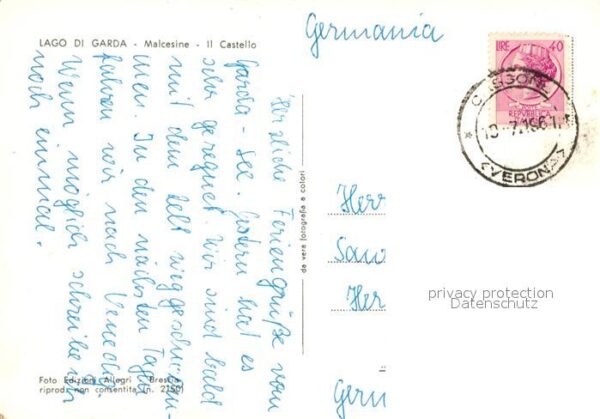 LAGO DI GARDA - Malcesine - Il Castello
Germania
LIRE 40
10-7.1961
(VERONA)
Herzliche Feriengrüße vom
Garda-See. Gestern hat es
sehr geregnet. Wir sind bald
mit dem Zelt weggeschwom-
men. In den nächsten Tagen
fahren wir nach Venedig.
Wenn möglich schreibe ich
noch einmal.
da vera fotografia a colori
Herr
Her
privacy protection
Datenschutz
Germ
Foto Edizioni Allegri - Brescia
riprod. non consentita (n. 2750)